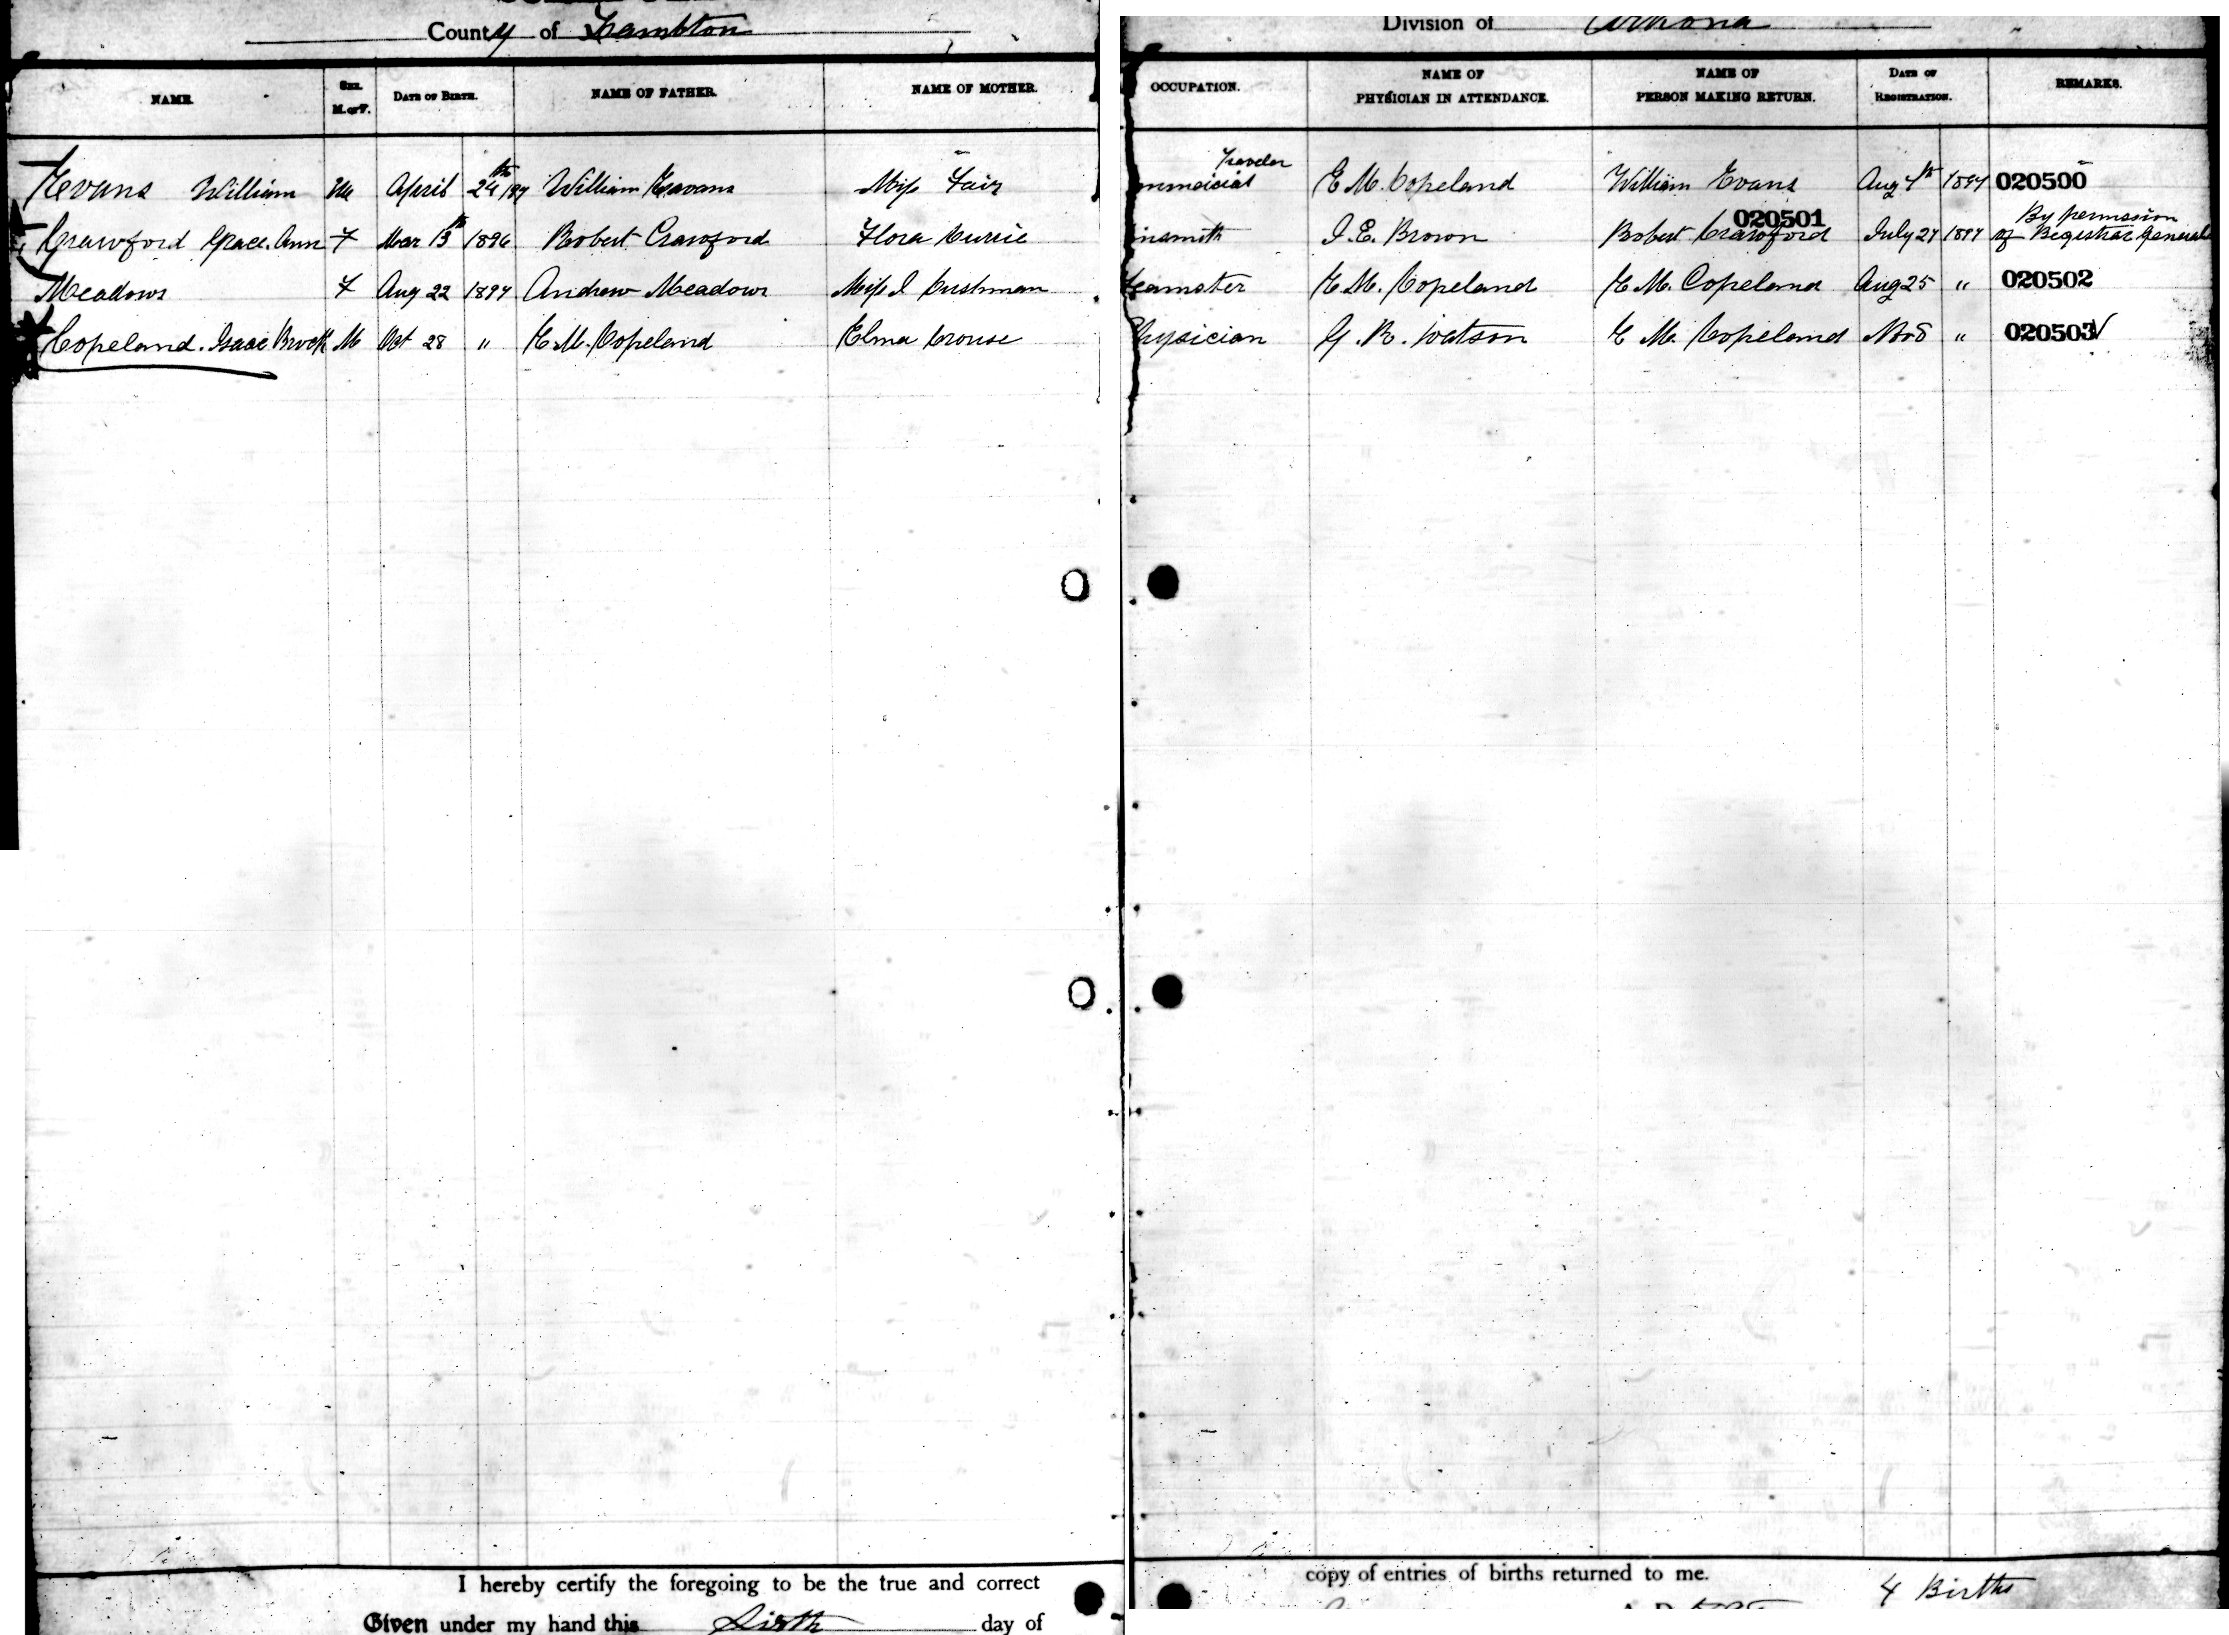 County of Lambton
Division of Arkona
NAME. SEX. M. or F. DATE OF BIRTH. NAME OF FATHER. NAME OF MOTHER. OCCUPATION. NAME OF PHYSICIAN IN ATTENDANCE. NAME OF PERSON MAKING RETURN. DATE OF REGISTRATION. REMARKS.
Traveler
Evans William M April 24th /97 William Evans Miss Fair mmercial E M. Copeland William Evans Aug 4th 1897 020500
020501 By permission
Crawford Grace Ann F Mar 13th 1896 Robert Crawford Flora Currie insmith I. E. Brown Robert Crawford July 27 1897 of Registrar General
Meadows F Aug 22 1897 Andrew Meadows Miss I Cushman Teamster E. M. Copeland E. M. Copeland Aug 25 " 020502
Copeland Isaac Brock M Oct 28 " E. M. Copeland Elma Crouse Physician G. R. Watson E M. Copeland Nov 8 " 020503
I hereby certify the foregoing to be the true and correct copy of entries of births returned to me.
4 Births
Given under my hand this Sixth day of